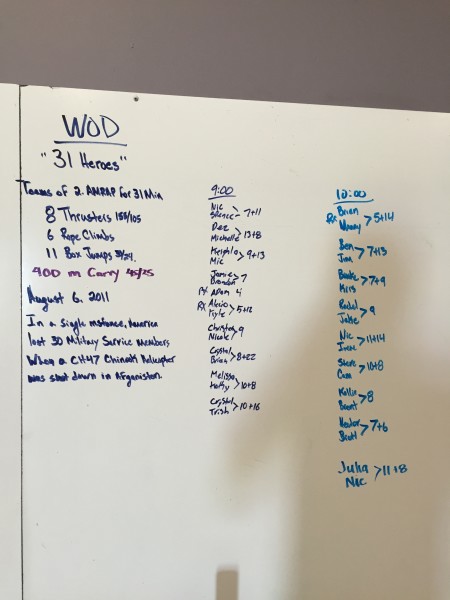 WOD
"31 Heroes"
Teams of 2. AMRAP for 31 Min
8 Thrusters 155/105
6 Rope Climbs
11 Box Jumps 30/24
400 m Carry 45/25
August 6, 2011
In a single instance, America
lost 30 Military Service Members
When a CH47 Chinook Helicopter
was shot down in Afganistan.
9:00
Nic
> 7+11
Dee
Michelle > 13+8
Mic > 9+13
Jamie
Brandon > 7
Rx Adam 4
Rx Alecio
Kyle > 5+12
Christon
Nicole > 9
Crystal
Brian > 8+22
Melissa
Kathy > 10+8
Crystal
Trish > 10+16
10:00
Rx Brian
Manny > 5+14
Ben
Jim > 7+13
Kris > 7+9
Rachel
Jake > 9
Nic
> 11+14
Steve
Cam > 10+8
Kellie
Brent > 8
Hector
Brett > 7+6
Julia
Nic > 11+8